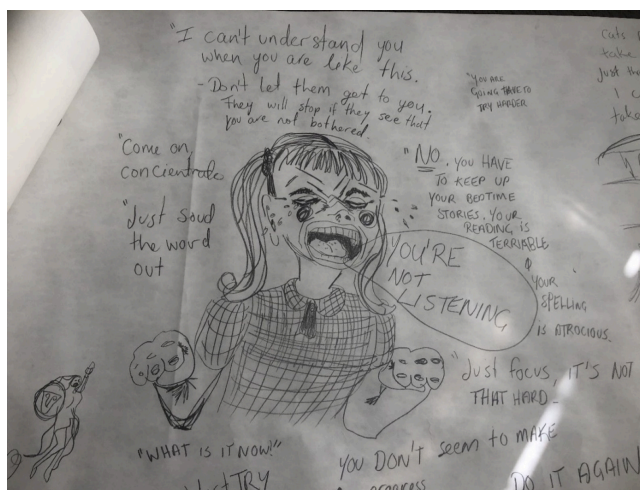 "I can't understand you
when you are like this.
- Don't let them get to you.
They will stop if they see that
you are not bothered.
"YOU ARE
GOING TO
TRY HARDER
cuts
take
Just th
I c
take
"Come on,
concientrate
"Just soud
the word
out
"NO, YOU HAVE
TO KEEP UP
YOUR BEDTIME
STORIES, YOUR
READING IS
TERRIABLE
&
YOUR
SPELLING
IS ATROCIOUS.
YOU'RE
NOT
LISTENING
"Just focus, IT'S NOT
THAT HARD -
"WHAT IS IT NOW!"
YOU DON'T seem to MAKE
progress
Just TRY
DO IT AGAIN